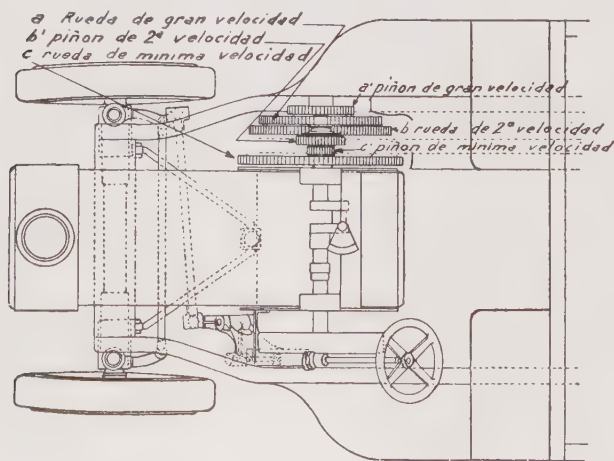 a Rueda de gran velocidad
b' piñon de 2ª velocidad
c rueda de minima velocidad
a' piñon de gran velocidad
b rueda de 2ª velocidad
c' piñon de minima velocidad